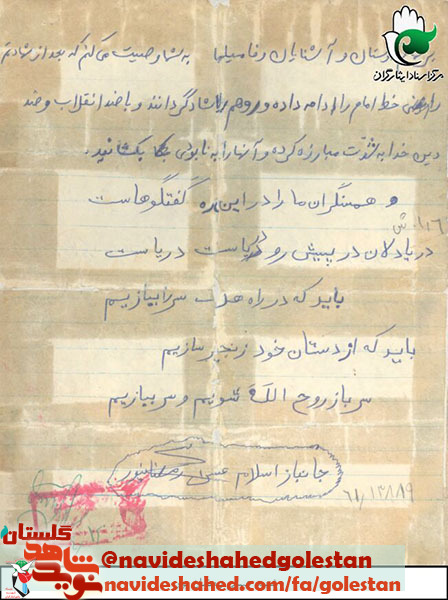 مرکز اسناد ایثارگران
دوستان و آشنایان و فامیلها به شما وصیت می‌کنم که بعد از شهادتم
راه یعنی خط امام را ادامه داده و روحم را شاد گردانند و با ضد انقلاب و ضد
دین خدا به شدت مبارزه کرده و آنها را به نابودی بکشانید.
و همسنگران ما را در این ره گفتگوهاست
دریادلان در پیش رو دریاست دریاست
باید که در راه هدف سر ببازیم
باید که از دستان خود زنجیر سازیم
سرباز روح الله شویم و سر ببازیم
جانباز اسلام
گلستان
نوید شاهد
@navideshahedgolestan
navideshahed.com/fa/golestan